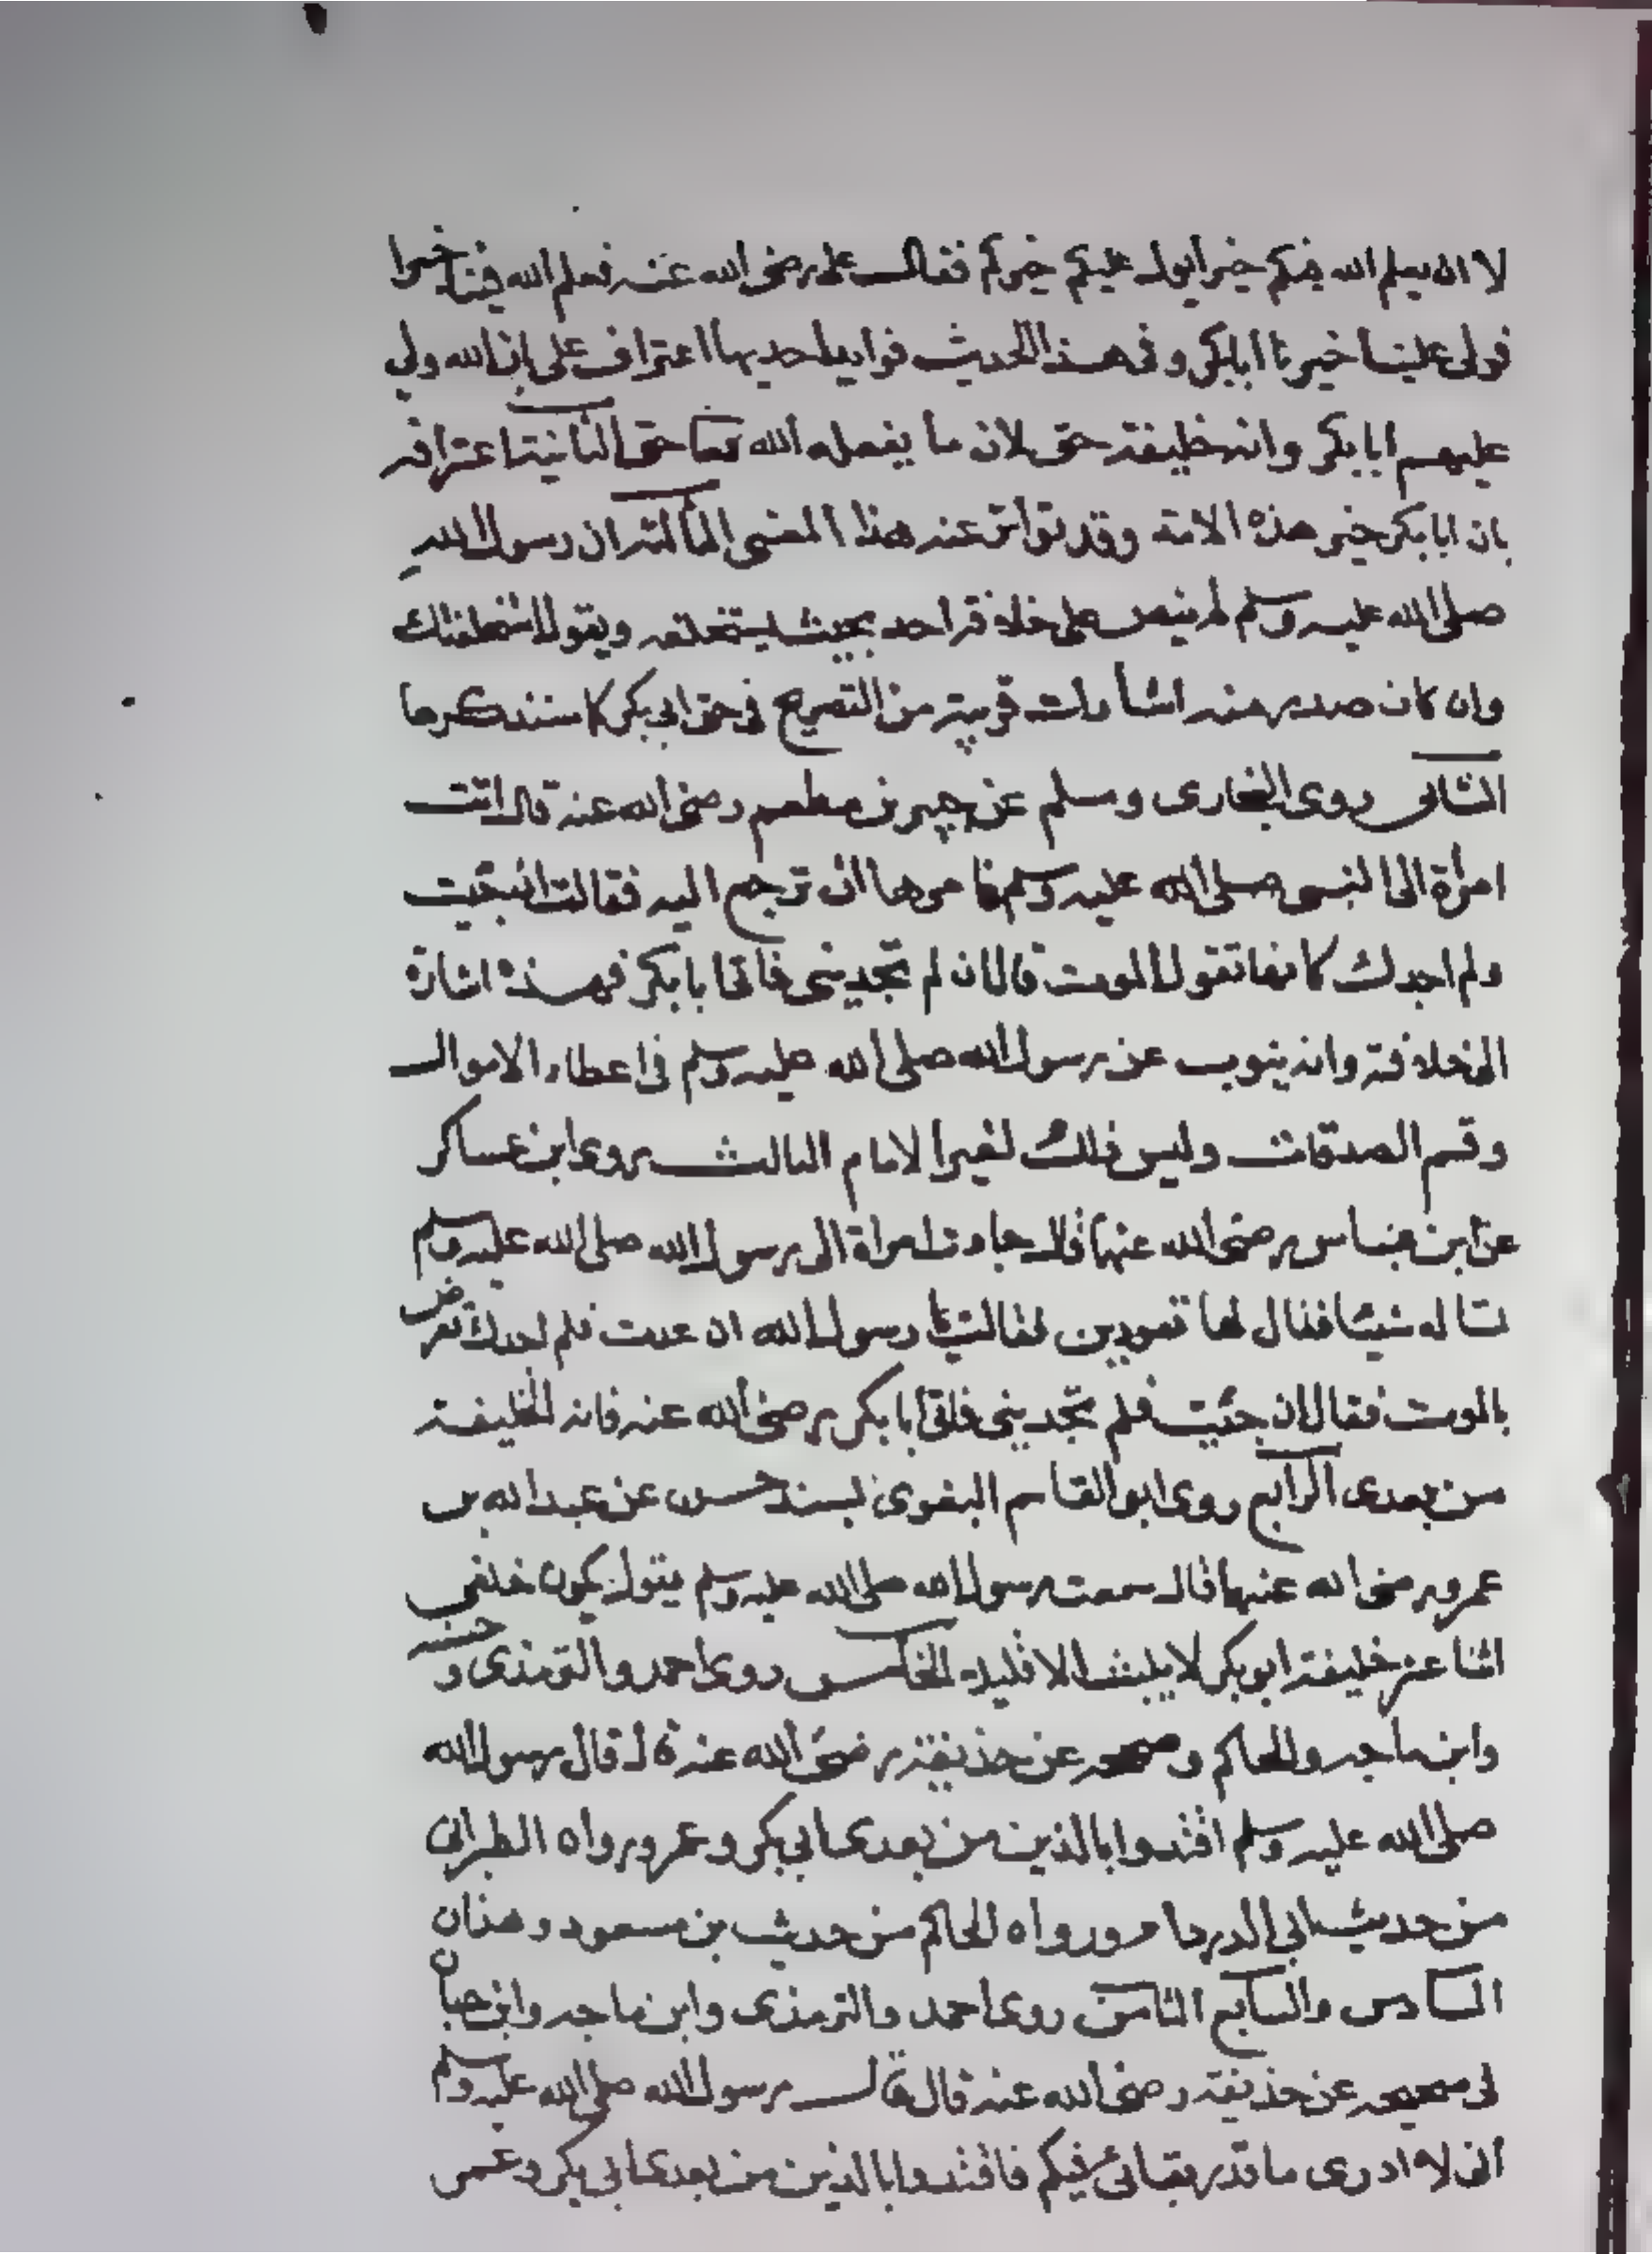 لا ان يعلم الله فيكم خيرا يول عليكم خيركم فقال على رضى الله عنه فعلم الله فينا خيرا
فولى علينا خيرنا ابابكر و فى هذا الحديث فوايد احديها اعتراف على بان الله ولي
عليهم ابابكر وانه خليفة حق لان ما يفعله الله تعا حق الثانية اعترافه
بان ابابكر خير هذه الامة وقد تواتر عنه هذا المعنى الثالثة ان رسول الله
صلى الله عليه وسلم لم ينص على خلافة احد بحيث يستخلفه ويقول استخلفتك
وان كان صدر منه اشارات قريبة من التصريح فى حق ابى بكر كما سنذكرها
الثانى روى البخارى ومسلم عن جبير بن مطعم رضى الله عنه قال اتت
امرأة الى النبى صلى الله عليه وسلم فامرها ان ترجع اليه فقالت ان جيت
ولم اجدك كانها تقول الموت قال ان لم تجدينى فاتى ابابكر فهذه اشارة
الى خلافة وانه ينوب عن رسول الله صلى الله عليه وسلم فى اعطاء الاموال
وقسم الصدقات وليس ذلك لغير الامام الثالث روى ابن عساكر
عن ابن عباس رضى الله عنهما قال جاءت امراة الى رسول الله صلى الله عليه وسلم
تساله شيئا فقال لها تعودين فقالت يا رسول الله ان عدت فلم اجدك تعرض
بالموت فقال ان جئيت فلم تجدينى فاتى ابابكر رضى الله عنه فانه الخليفة
من بعدى الرابع روى ابو القاسم البغوى بسند حسن عن عبد الله بن
عمر رضى الله عنهما قال سمعت رسول الله صلى الله عليه وسلم يقول يكون خلفى
اثنا عشر خليفة ابوبكر لا يلبث الا قليلا الخامس روى احمد والترمذى وحسنه
وابن ماجه والحاكم وصححه عن حذيفة رضى الله عنه قال قال رسول الله
صلى الله عليه وسلم اقتدوا بالذين من بعدى ابى بكر وعمر ورواه الطبرانى
من حديث ابى الدرداء ورواه الحاكم من حديث بن مسعود وهذان
السادس والسابع الثامن روى احمد والترمذى وابن ماجه وابن حبان
فى صحيحه عن حذيفة رضى الله عنه قال قال رسول الله صلى الله عليه وسلم
انى لا ادرى ما قدر بقائى فيكم فاقتدوا بالذين من بعدى ابى بكر وعمر